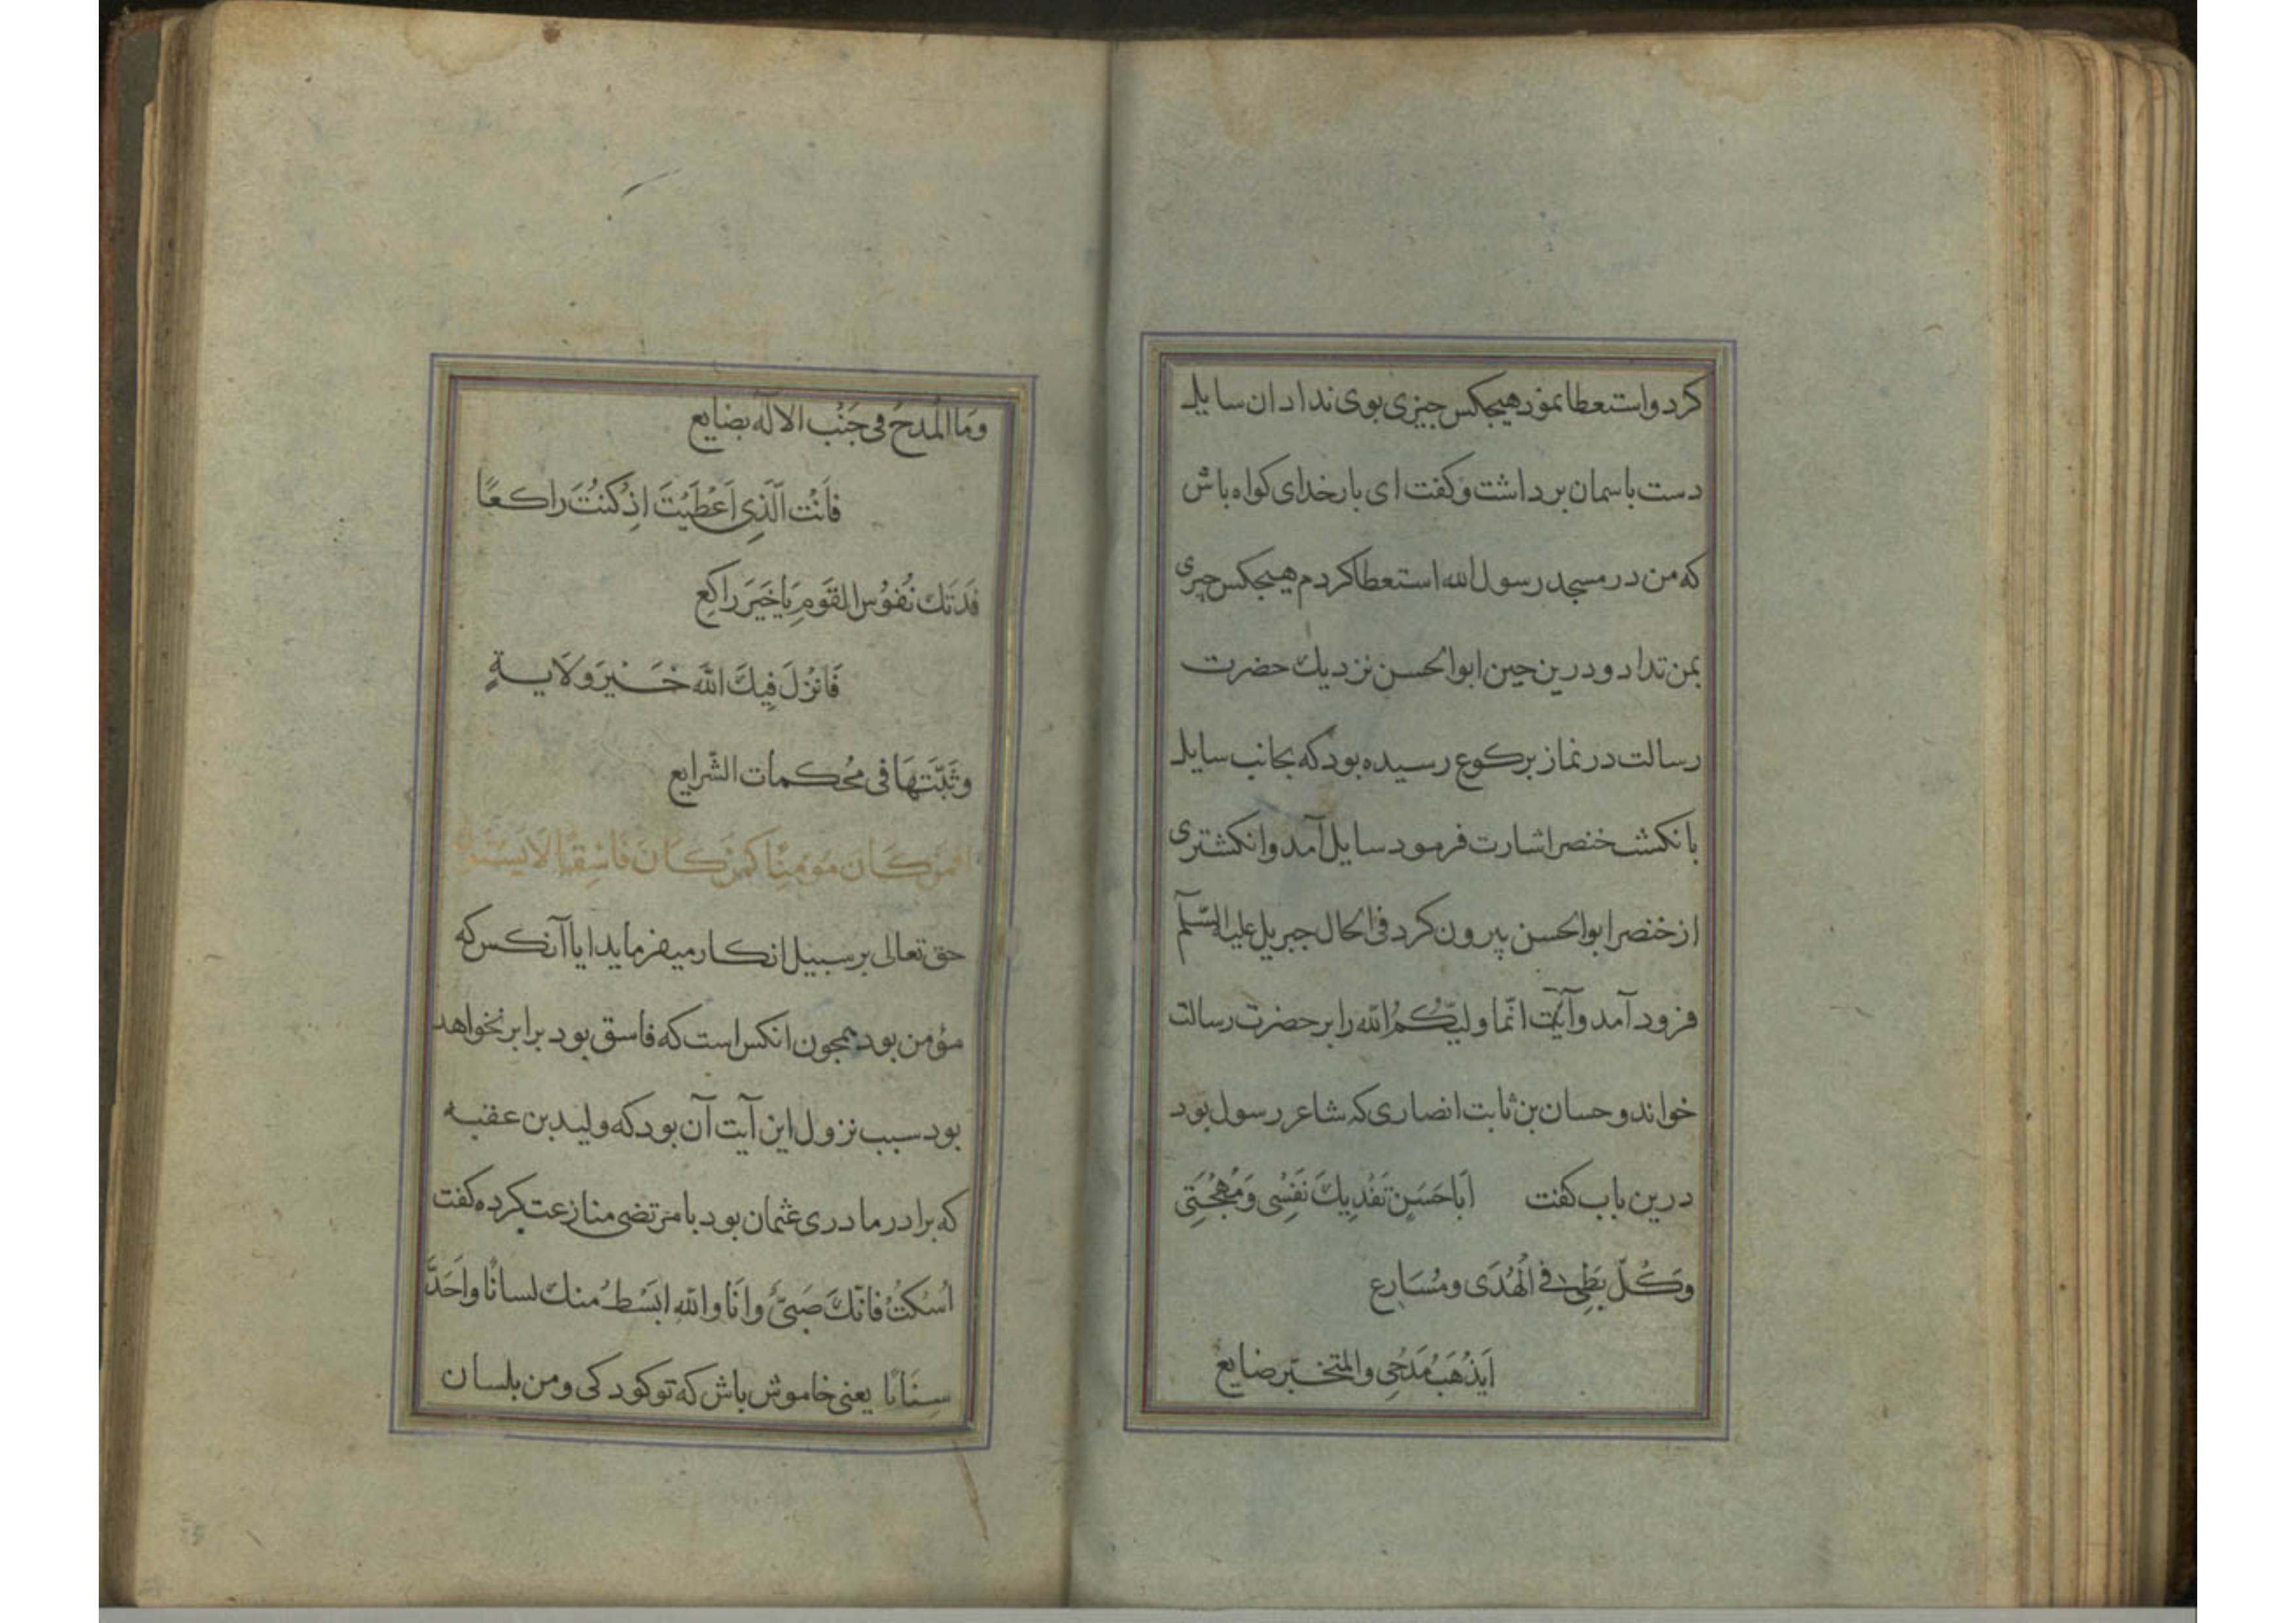 کرد واستعطا نمود هیچکس چیزی بوی نداد ان سایل
دست باسمان برداشت و کفت ای بار خدای کواه باش
که من در مسجد رسول الله استعطا کردم هیچکس چیزی
بمن نداد و درین حین ابوالحسن نزدیك حضرت
رسالت در نماز برکوع رسیده بود که بجانب سایل
بانکشت خنصر اشارت فرمود سایل آمد و انکشتری
از خنصر ابوالحسن بیرون کرد فی الحال جبریل علیه السّلم
فرود آمد و آیت انّما ولیّکُمُ الله را بر حضرت رسالت
خواند و حسان بن ثابت انصاری که شاعر رسول بود
درین باب کفت اَبَا حَسَنٍ تَفْدِیكَ نَفْسِی وَمُهْجَتِی
وَکُلّ بَطِیءٍ فِی الْهُدَی ومُسَارِع
اَیَذْهَبُ مَدْحِی والمتخبّر ضایع
وَمَا الْمَدحُ فِی جَنْبِ الالٰه بضَایع
فَاَنْتَ الَّذِی اَعْطَیْتَ اِذْ کُنْتَ رَاکِعًا
فَدَتكَ نُفُوُس القَوم یَا خَیرَ رَاکِع
فَانْزَلَ فِیكَ الله خَیرَ وِلَایةٍ
وثَبّتَهَا فی مُحکمات الشّرایع
افمن کَانَ مُومِنًا کَمَن کَانَ فَاسِقًا لَا یَسْتَوُنَ
حق تعالی بر سبیل انکار میفرماید ایا آنکس که
مؤمن بود همچون انکس است که فاسق بود برابر نخواهد
بود سبب نزول این آیت آن بود که ولید بن عقبه
که برادر مادری عثمان بود با مرتضی منازعت کرده کفت
اُسْکُتْ فَانّكَ صَبِیٌّ وانَا والله ابْسَطُ منك لسانًا واَحَدُّ
سِنَانًا یعنی خاموش باش که تو کودکی و من بلسان